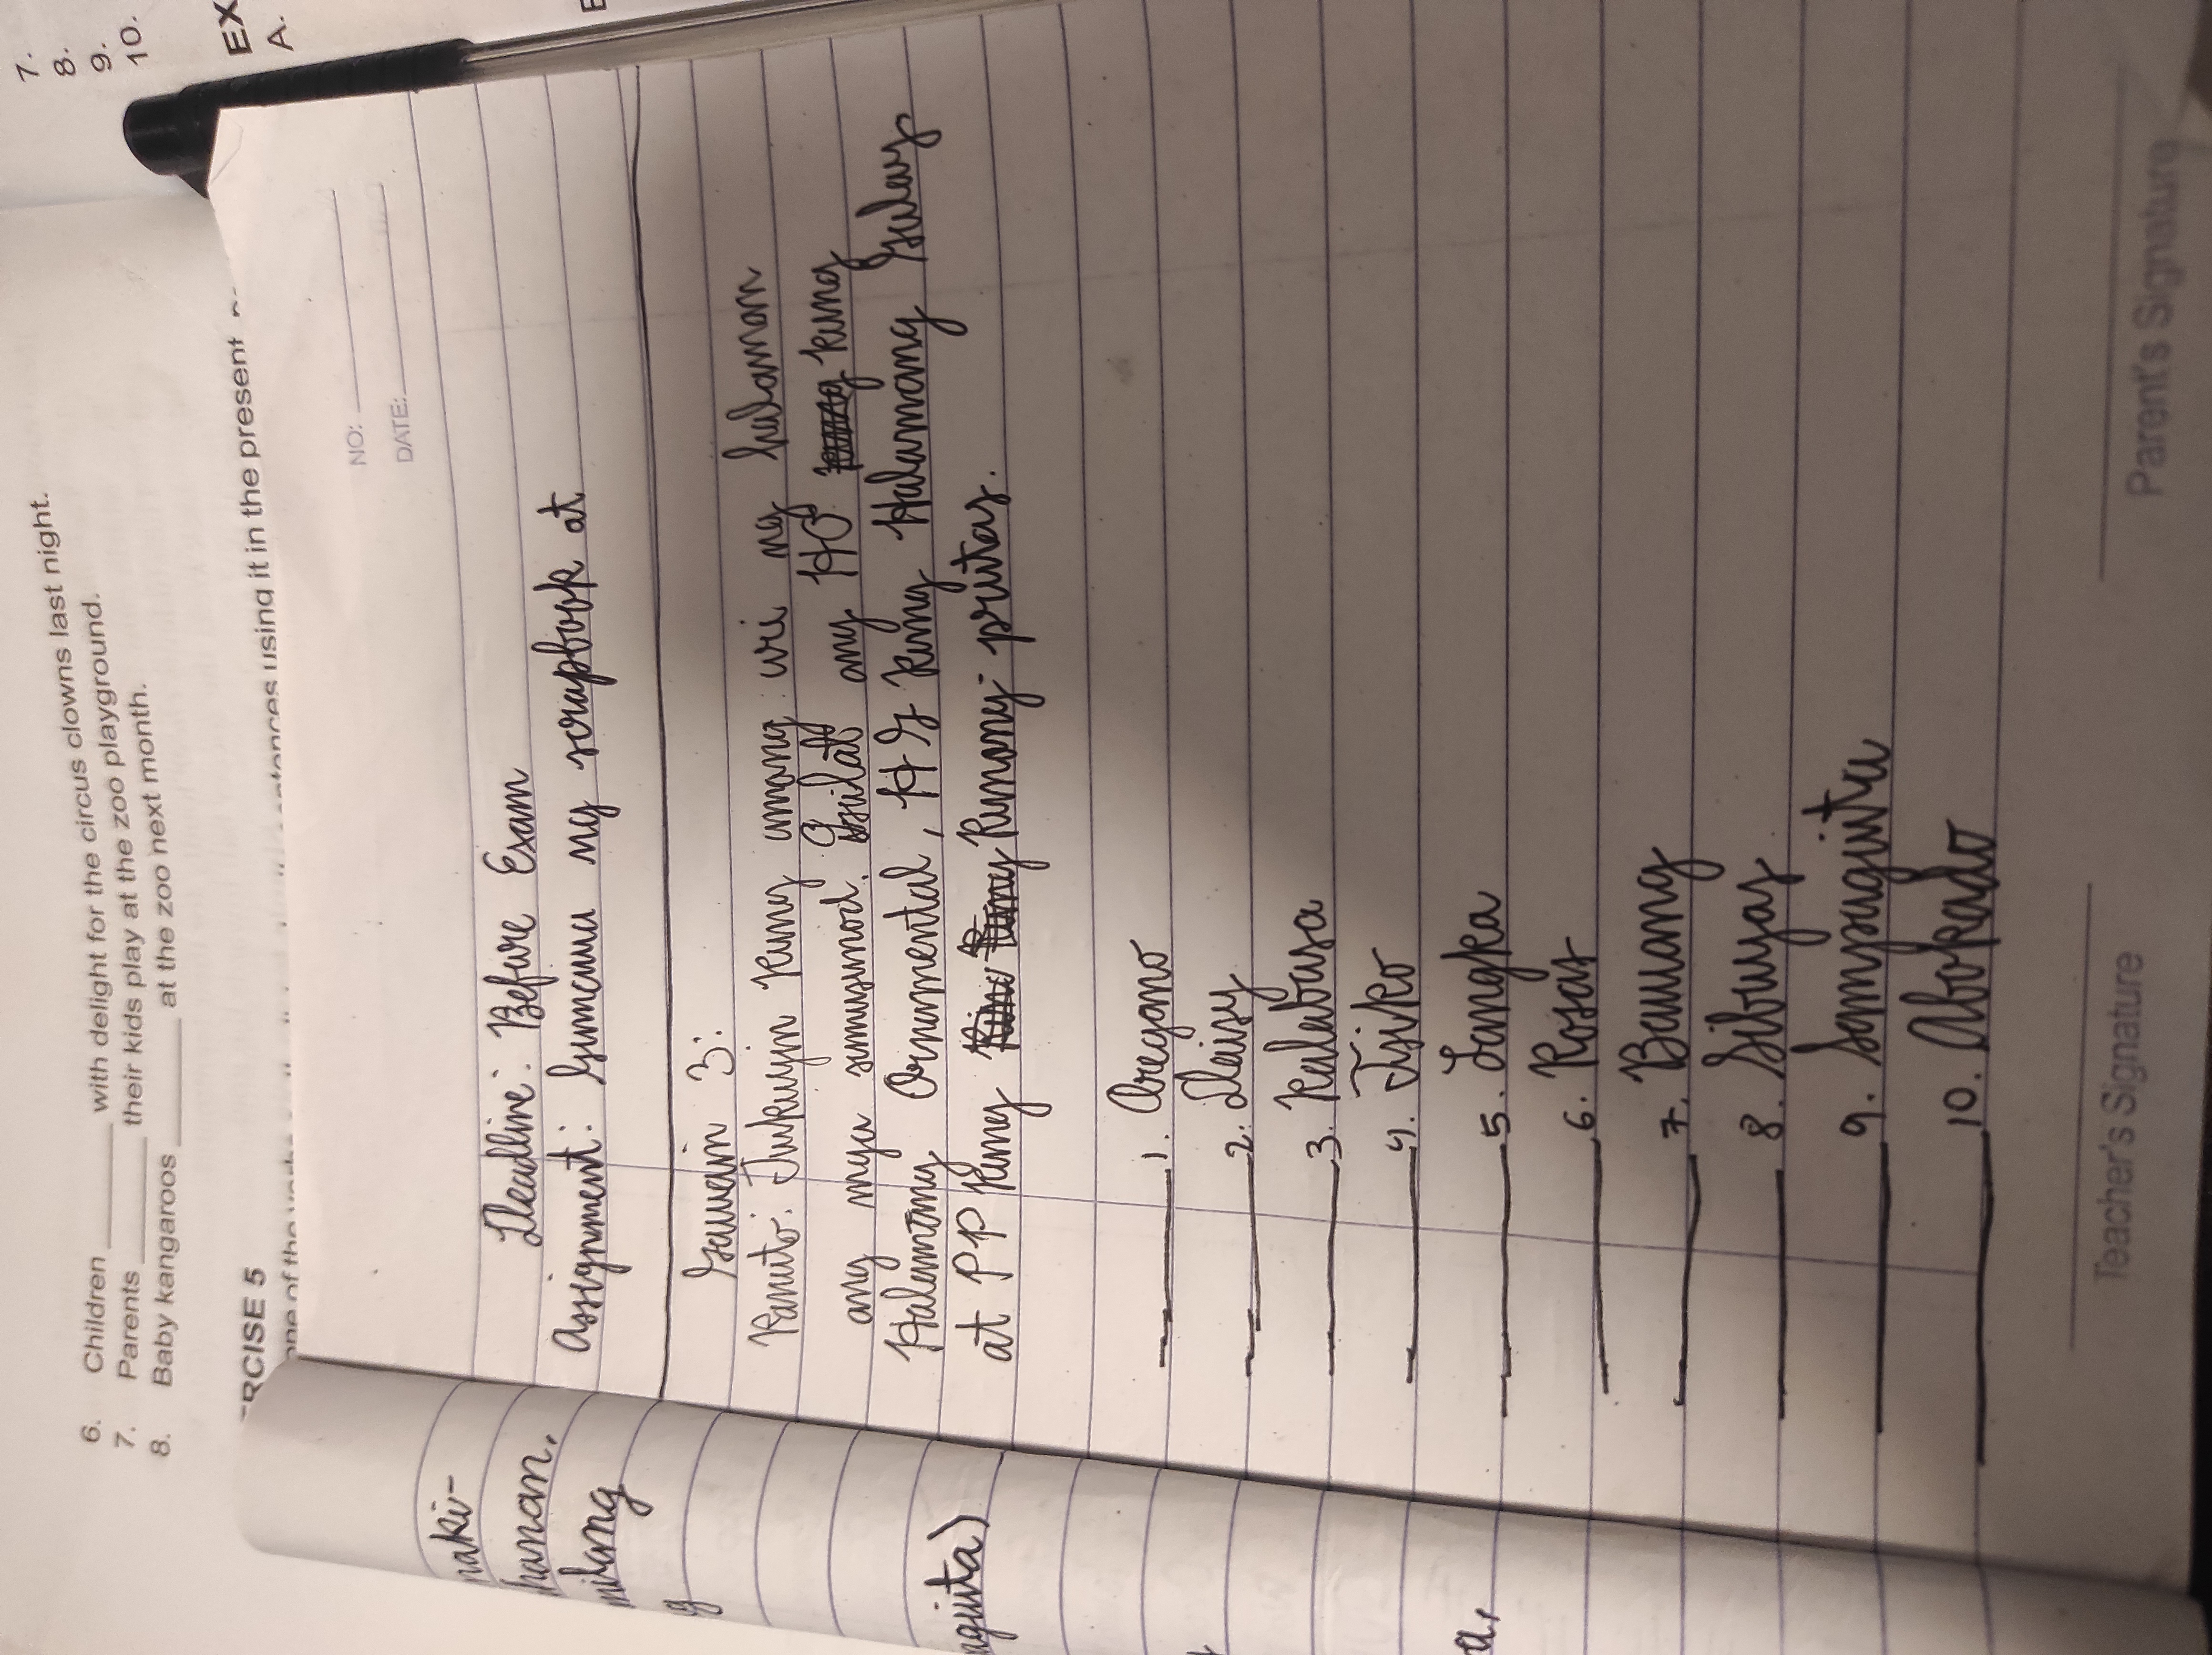 6. Children ________ with delight for the circus clowns last night.
7. Parents ________ their kids play at the zoo playground.
8. Baby kangaroos ________ at the zoo next month.
7.
8.
9.
10.
RCISE 5
one of the sentences using it in the present
EX
A.
NO:
DATE:
naki-
hanan,
milang
g
aguita)
a,
Deadline: Before Exam
Assignment: Gumawa ng scrapbook at
Gawain 3:
Panuto: Tukuyin kung anong uri ng halaman
ang mga sumusunod. Isulat ang HO kung
Halamang Ornamental, HG kung Halamang Gulay
at PP kung Punong-prutas.
1. Oregano
2. Daisy
3. Kalabasa
4. Tsiko
5. Langka
6. Rosas
7. Bawang
8. Sibuyas
9. Sampaguita
10. Abokado
Teacher's Signature
Parent's Signature